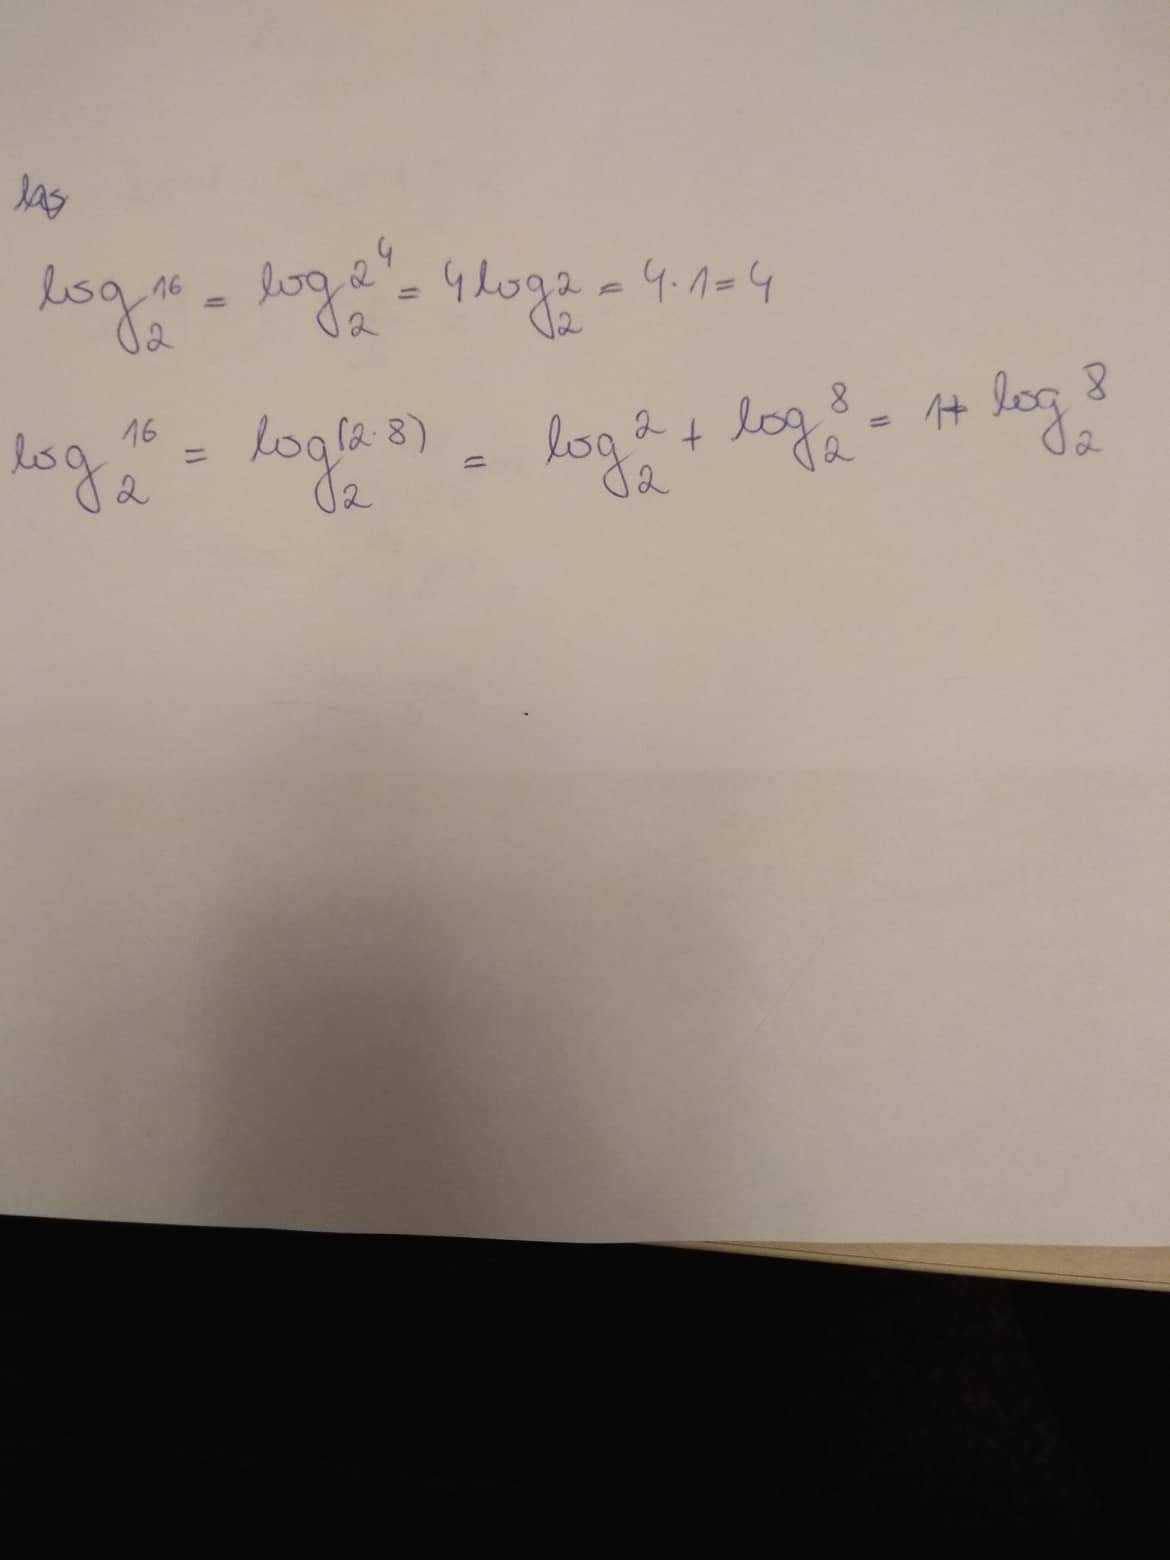 log
log₂16 = log₂2⁴ = 4log₂2 = 4·1=4
log₂16 = log₂(2·8) = log₂2 + log₂8 = 1+ log₂8